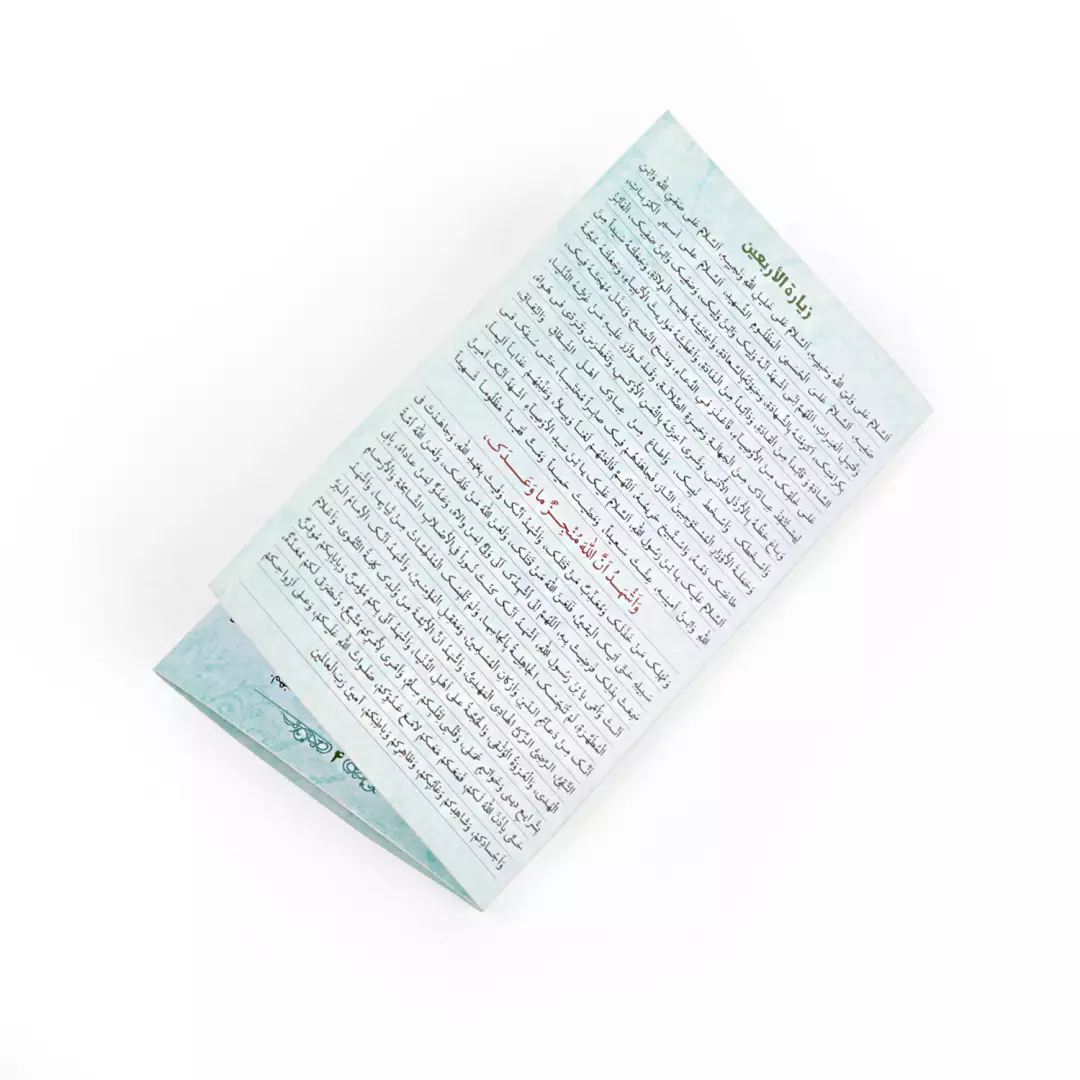 زيارة الأربعين
اَلسَّلامُ عَلى وَلِيِّ اللهِ وَحَبيبِهِ، اَلسَّلامُ عَلى خَليلِ اللهِ وَنَجيبِهِ، اَلسَّلامُ عَلى صَفِيِّ اللهِ وَابْنِ
صَفِيِّهِ، اَلسَّلامُ عَلىَ الحُسَينِ المَظْلُومِ الشَّهيدِ، اَلسَّلامُ على اَسيرِ الكُرُباتِ،
وَقَتيلِ العَبَراتِ، اَللّهُمَّ اِنّي اَشْهَدُ اَنَّهُ وَلِيُّكَ وَابْنُ وَلِيِّكَ، وَصَفِيُّكَ وَابْنُ صَفِيِّكَ، الفائِزُ
بِكَرامَتِكَ، اَكْرَمْتَهُ بِالشَّهادَةِ، وَحَبَوْتَهُ بِالسَّعادَةِ، وَاجْتَبَيْتَهُ بِطيبِ الوِلادَةِ، وَجَعَلْتَهُ سَيِّداً مِنَ
السّادَةِ وَ قائِداً مِنَ القادَةِ، وَذائِداً مِنَ الذّادَةِ، وَاَعْطَيْتَهُ مَواريثَ الأَنْبِياءِ، وَجَعَلْتَهُ حُجَّةً
عَلى خَلْقِكَ مِنَ الأَوْصِياءِ، فَاَعْذَرَ فيِ الدُّعاءِ، وَمَنَحَ النُّصْحَ، وَبَذَلَ مُهْجَتَهُ فيكَ،
لِيَسْتَنْقِذَ عِبادَكَ مِنَ الجَهالَةِ وَحَيْرَةِ الضَّلالَةِ، وَقَدْ تَوازَرَ عَلَيْهِ مَنْ غَرَّتْهُ الدُّنْيا،
وَباعَ حَظَّهُ بِالأَرْذَلِ الأَدْنى، وَشَرى آخِرَتَهُ بِالثَّمَنِ الأَوْكَسِ، وَتَغَطْرَسَ وَتَرَدّى في هَواهُ،
وَاَسْخَطَكَ وَاَسْخَطَ نَبِيَّكَ، وَاَطاعَ مِنْ عِبادِكَ اَهْلَ الشِّقاقِ وَالنِّفاقِ،
وَحَمَلَةَ الأَوْزارِ المُسْتَوْجِبينَ النّارَ، فَجاهَدَهُمْ فيكَ صابِراً مُحْتَسِباً حَتّى سُفِكَ في
طاعَتِكَ دَمُهُ وَاسْتُبيحَ حَريمُهُ، اَللّهُمَّ فَالعَنْهُمْ لَعْناً وَبيلاً، وَعَذِّبْهُمْ عَذاباً اَليماً
اَلسَّلامُ عَلَيْكَ يا بْنَ رَسُولِ اللهِ، اَلسَّلامُ عَلَيْكَ يا بْنَ سَيِّدِ الأَوْصِياءِ اَشْهَدُ اَنَّكَ اَمينُ
اللهِ وَابْنُ اَمينِهِ، عِشْتَ سَعيداً، وَمَضَيْتَ حَميداً وَمُتَّ فَقيداً مَظْلُوماً شَهيداً
وَاَشْهَدُ اَنَّ اللهَ مُنْجِزٌ ما وَعَدَكَ،
وَمُهْلِكٌ مَنْ خَذَلَكَ، وَمُعَذِّبٌ مَنْ قَتَلَكَ، وَاَشْهَدُ اَنَّكَ وَفَيْتَ بِعَهْدِ اللهِ، وَجاهَدْتَ في
سَبيلِهِ حَتّى اَتيكَ اليَقينُ، فَلَعَنَ اللهُ مَنْ قَتَلَكَ، وَلَعَنَ اللهُ مَنْ ظَلَمَكَ، وَلَعَنَ اللهُ اُمَّةً
سَمِعَتْ بِذلِكَ فَرَضِيَتْ بِهِ، اَللّهُمَّ اِنّي اُشْهِدُكَ اَنّي وَلِيٌّ لِمَنْ والاهُ، وَعَدُوٌّ لِمَنْ عاداهُ، بِاَبي
اَنْتَ وَاُمّي يا بْنَ رَسُولِ اللهِ، اَشْهَدُ اَنَّكَ كُنْتَ نُوراً فيِ الأَصْلابِ الشّامِخَةِ وَالأَرْحامِ
المُطَهَّرَةِ، لَمْ تُنَجِّسْكَ الجاهِلِيَّةُ بِاَنْجاسِها، وَلَمْ تُلْبِسْكَ المُدْلَهِمّاتُ مِنْ ثِيابِها، وَاَشْهَدُ
اَنَّكَ مِنْ دَعائِمِ الدّينِ وَاَرْكانِ المُسْلِمينَ، وَمَعْقِلِ المُؤْمِنينَ، وَاَشْهَدُ اَنَّكَ الإِمامُ البَرُّ
التَّقِيُّ، الرَّضِيُّ الزَّكِيُّ الهادِي المَهْدِيُّ، وَاَشْهَدُ اَنَّ الأَئِمَّةَ مِنْ وُلْدِكَ كَلِمَةُ التَّقْوى، وَاَعْلامُ
الهُدى، وَالعُرْوَةُ الوُثْقى، وَالحُجَّةُ عَلى اَهْلِ الدُّنْيا، وَاَشْهَدُ اَنّي بِكُمْ مُؤْمِنٌ، وَبِاِيابِكُمْ مُوقِنٌ
بِشَرايِعِ ديني وَخَواتيمِ عَمَلي، وَقَلْبي لِقَلْبِكُمْ سِلْمٌ، وَاَمْري لأَمْرِكُمْ مُتَّبِعٌ، وَنُصْرَتي لَكُمْ مُعَدَّةٌ،
حَتّى يَأْذَنَ اللهُ لَكُمْ، فَمَعَكُمْ مَعَكُمْ لامَعَ عَدُوِّكُمْ، صَلَواتُ اللهِ عَلَيْكُمْ، وَعَلى اَرْواحِكُمْ
وَاَجْسادِكُمْ، وَشاهِدِكُمْ وَغائِبِكُمْ، وَظاهِرِكُمْ وَباطِنِكُمْ، آمينَ رَبَّ العالَمينَ
۴